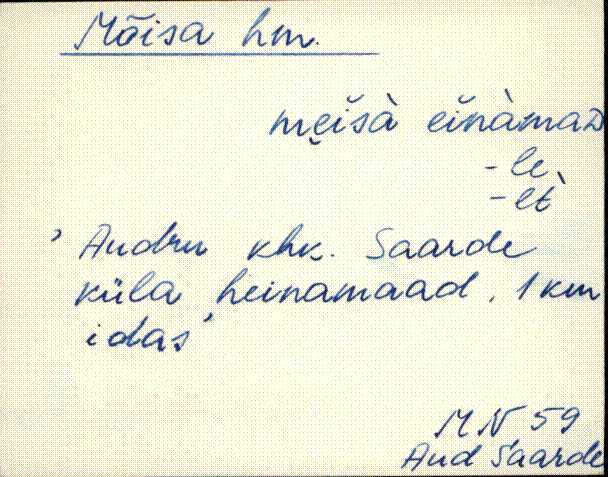 Mõisa hm.
mẹisà einàmaD
-le
-lt̀
' Audru khk. Saarde
küla heinamaad, 1 km
idas'
MN 59
Aud Saarde